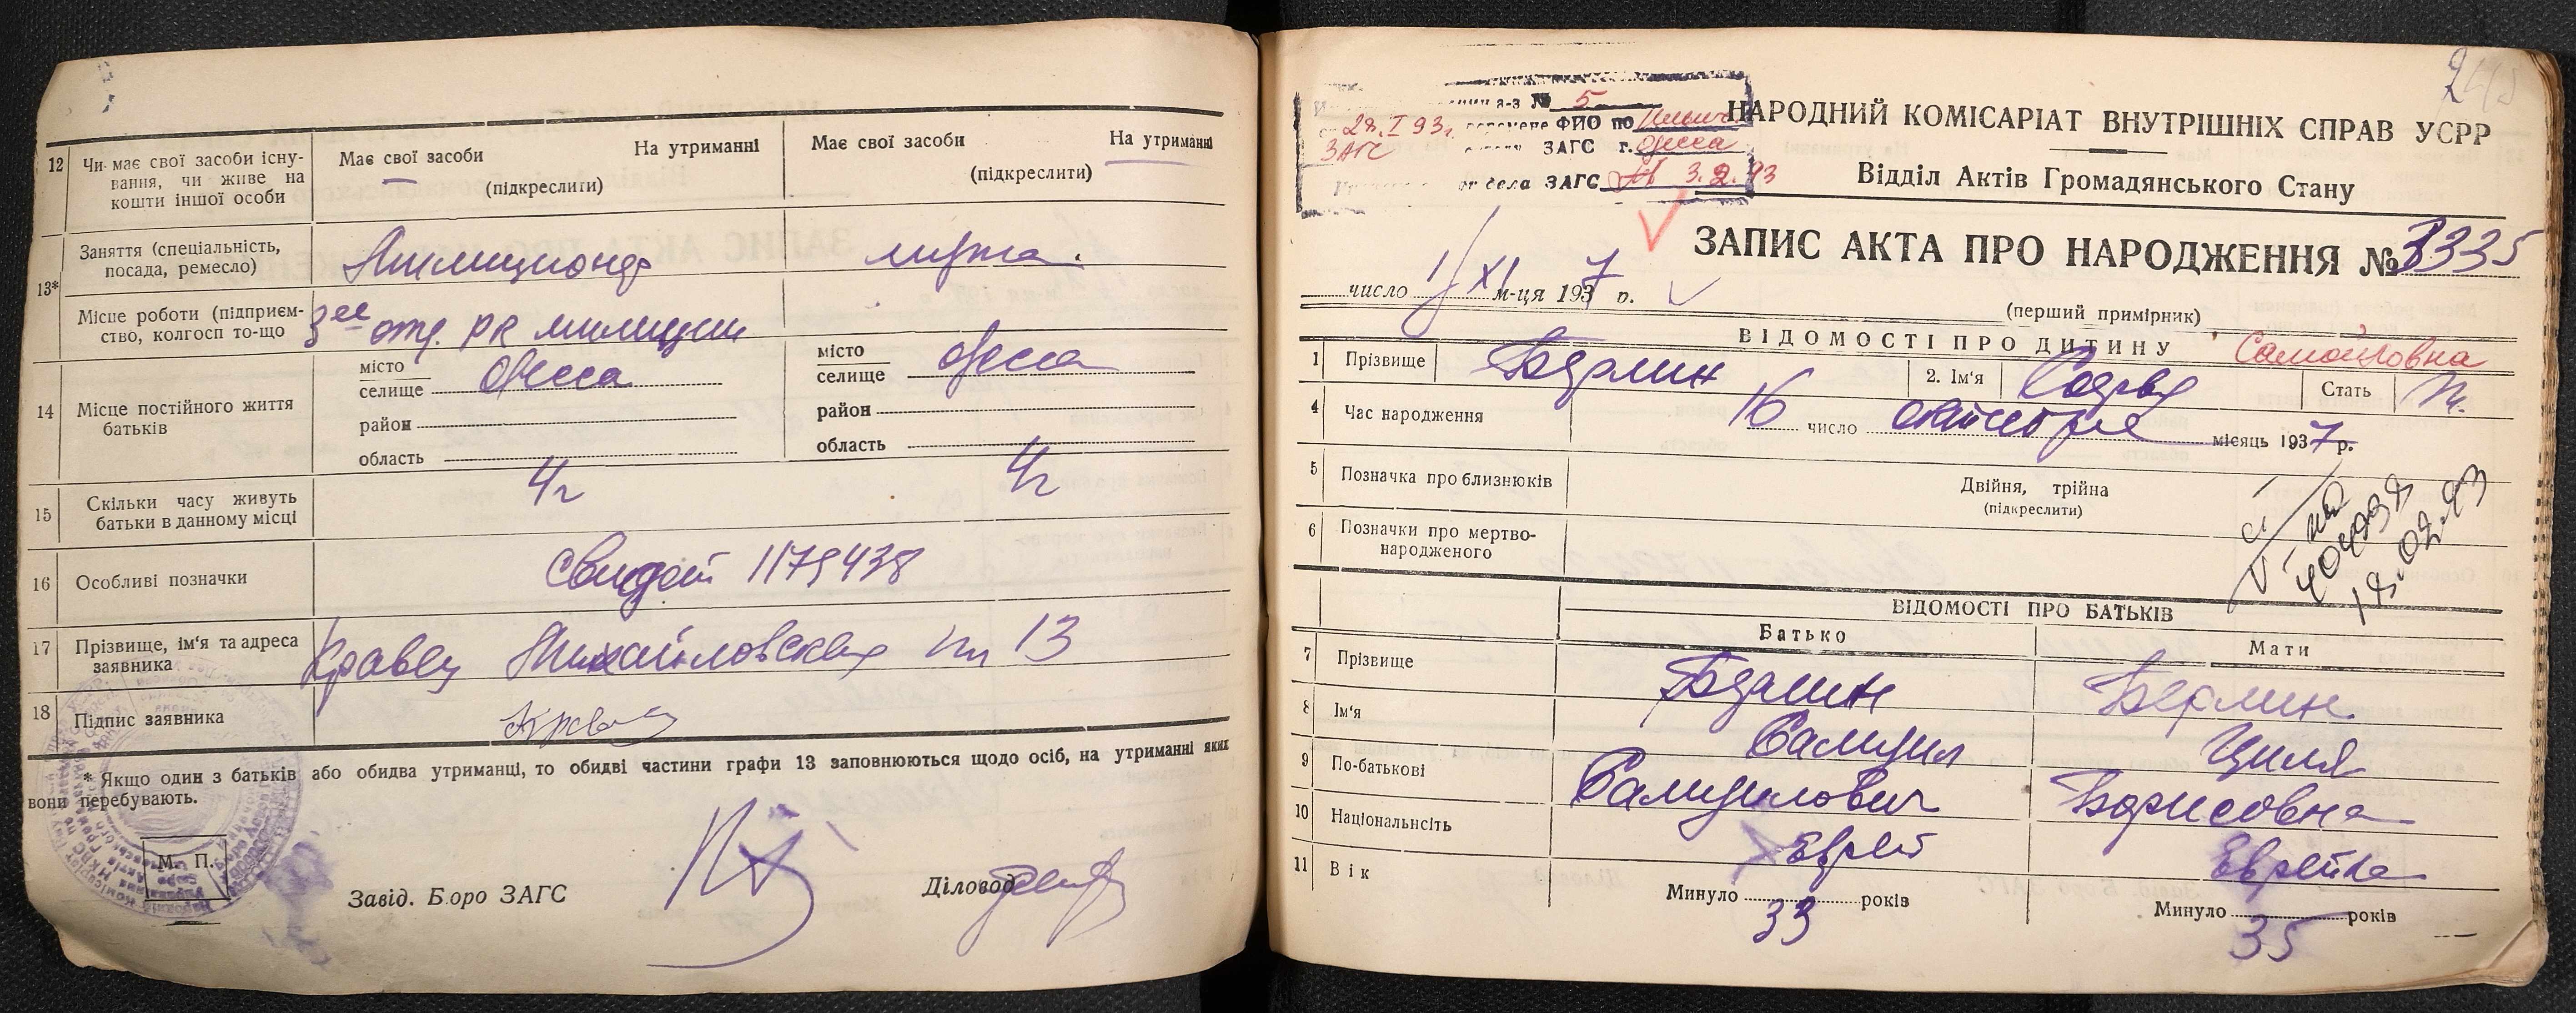 12 Чи має свої засоби існування, чи живе на кошти іншої особи
Має свої засоби На утриманні
(підкреслити)
Має свої засоби На утриманні
(підкреслити)
13* Заняття (спеціальність, посада, ремесло)
Милиционер
Місце роботи (підприємство, колгосп то-що
3ее отд. РК милиции
14 Місце постійного життя батьків
місто
селище Одесса
район
область
місто
селище Одесса
район
область
15 Скільки часу живуть батьки в данному місці
4г 4г
16 Особливі позначки
Свидет 1179438
17 Прізвище, ім'я та адреса заявника
Кравец Михайловская пл 13
18 Підпис заявника
* Якщо один з батьків або обидва утриманці, то обидві частини графи 13 заповнюються щодо осіб, на утриманні яких
вони перебувають.
М. П.
Завід. Бюро ЗАГС
Діловод
а-з № 5
28.I 93г. перемене ФИО по
ЗАГС ЗАГС г. Одесса
отдела ЗАГС 3.2.93
НАРОДНИЙ КОМІСАРІАТ ВНУТРІШНІХ СПРАВ УСРР
Відділ Актів Громадянського Стану
ЗАПИС АКТА ПРО НАРОДЖЕННЯ № 3335
число 1/XI м-ця 1937 р.
(перший примірник)
ВІДОМОСТІ ПРО ДИТИНУ
Самойловна
1 Прізвище Берлин 2. Ім'я Стать
4 Час народження 16 число октября місяць 1937 р.
5 Позначка про близнюків
Двійня, трійня
(підкреслити)
6 Позначки про мертвонародженого
18.02.93
ВІДОМОСТІ ПРО БАТЬКІВ
Батько Мати
7 Прізвище Берлин Берлин.
8 Ім'я Самуил Циля
9 По-батькові Самуилович Борисовна
10 Національність Еврей Еврейка
11 Вік Минуло 33 років Минуло 35 років